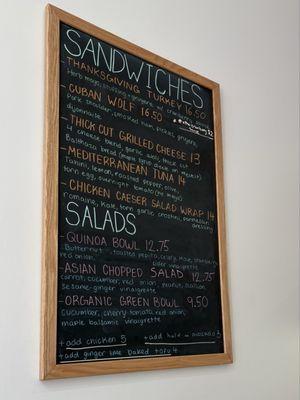 SANDWICHES
- THANKSGIVING TURKEY 16.50
Herb mayo, stuffing, gruyere, w/ cranberry
- CUBAN WOLF 16.50
pork shoulder, smoked ham, pickles, gruyere,
dijonnaise
- THICK CUT GRILLED CHEESE 13
4 cheese blend, garlic aioli, thick cut
Balthazar bread (maple syrup on request)
- MEDITERRANEAN TUNA 14
Tahini, lemon, roasted pepper, olive,
torn egg, overnight tomato (no mayo)
- CHICKEN CAESER SALAD WRAP 14
romaine, kale, torn garlic crostini, parmesan
dressing
SALADS
- QUINOA BOWL 12.75
Butternut, toasted pepita, celery, kale, cranberry,
red onion, cider vinaigrette
- ASIAN CHOPPED SALAD 12.75
carrot, cucumber, red onion, peanut, scallion,
sesame-ginger vinaigrette
- ORGANIC GREEN BOWL 9.50
cucumber, cherry tomato, red onion,
maple balsamic vinaigrette
+ add chicken 5 + add half avocado 3
+ add ginger lime baked tofu 4